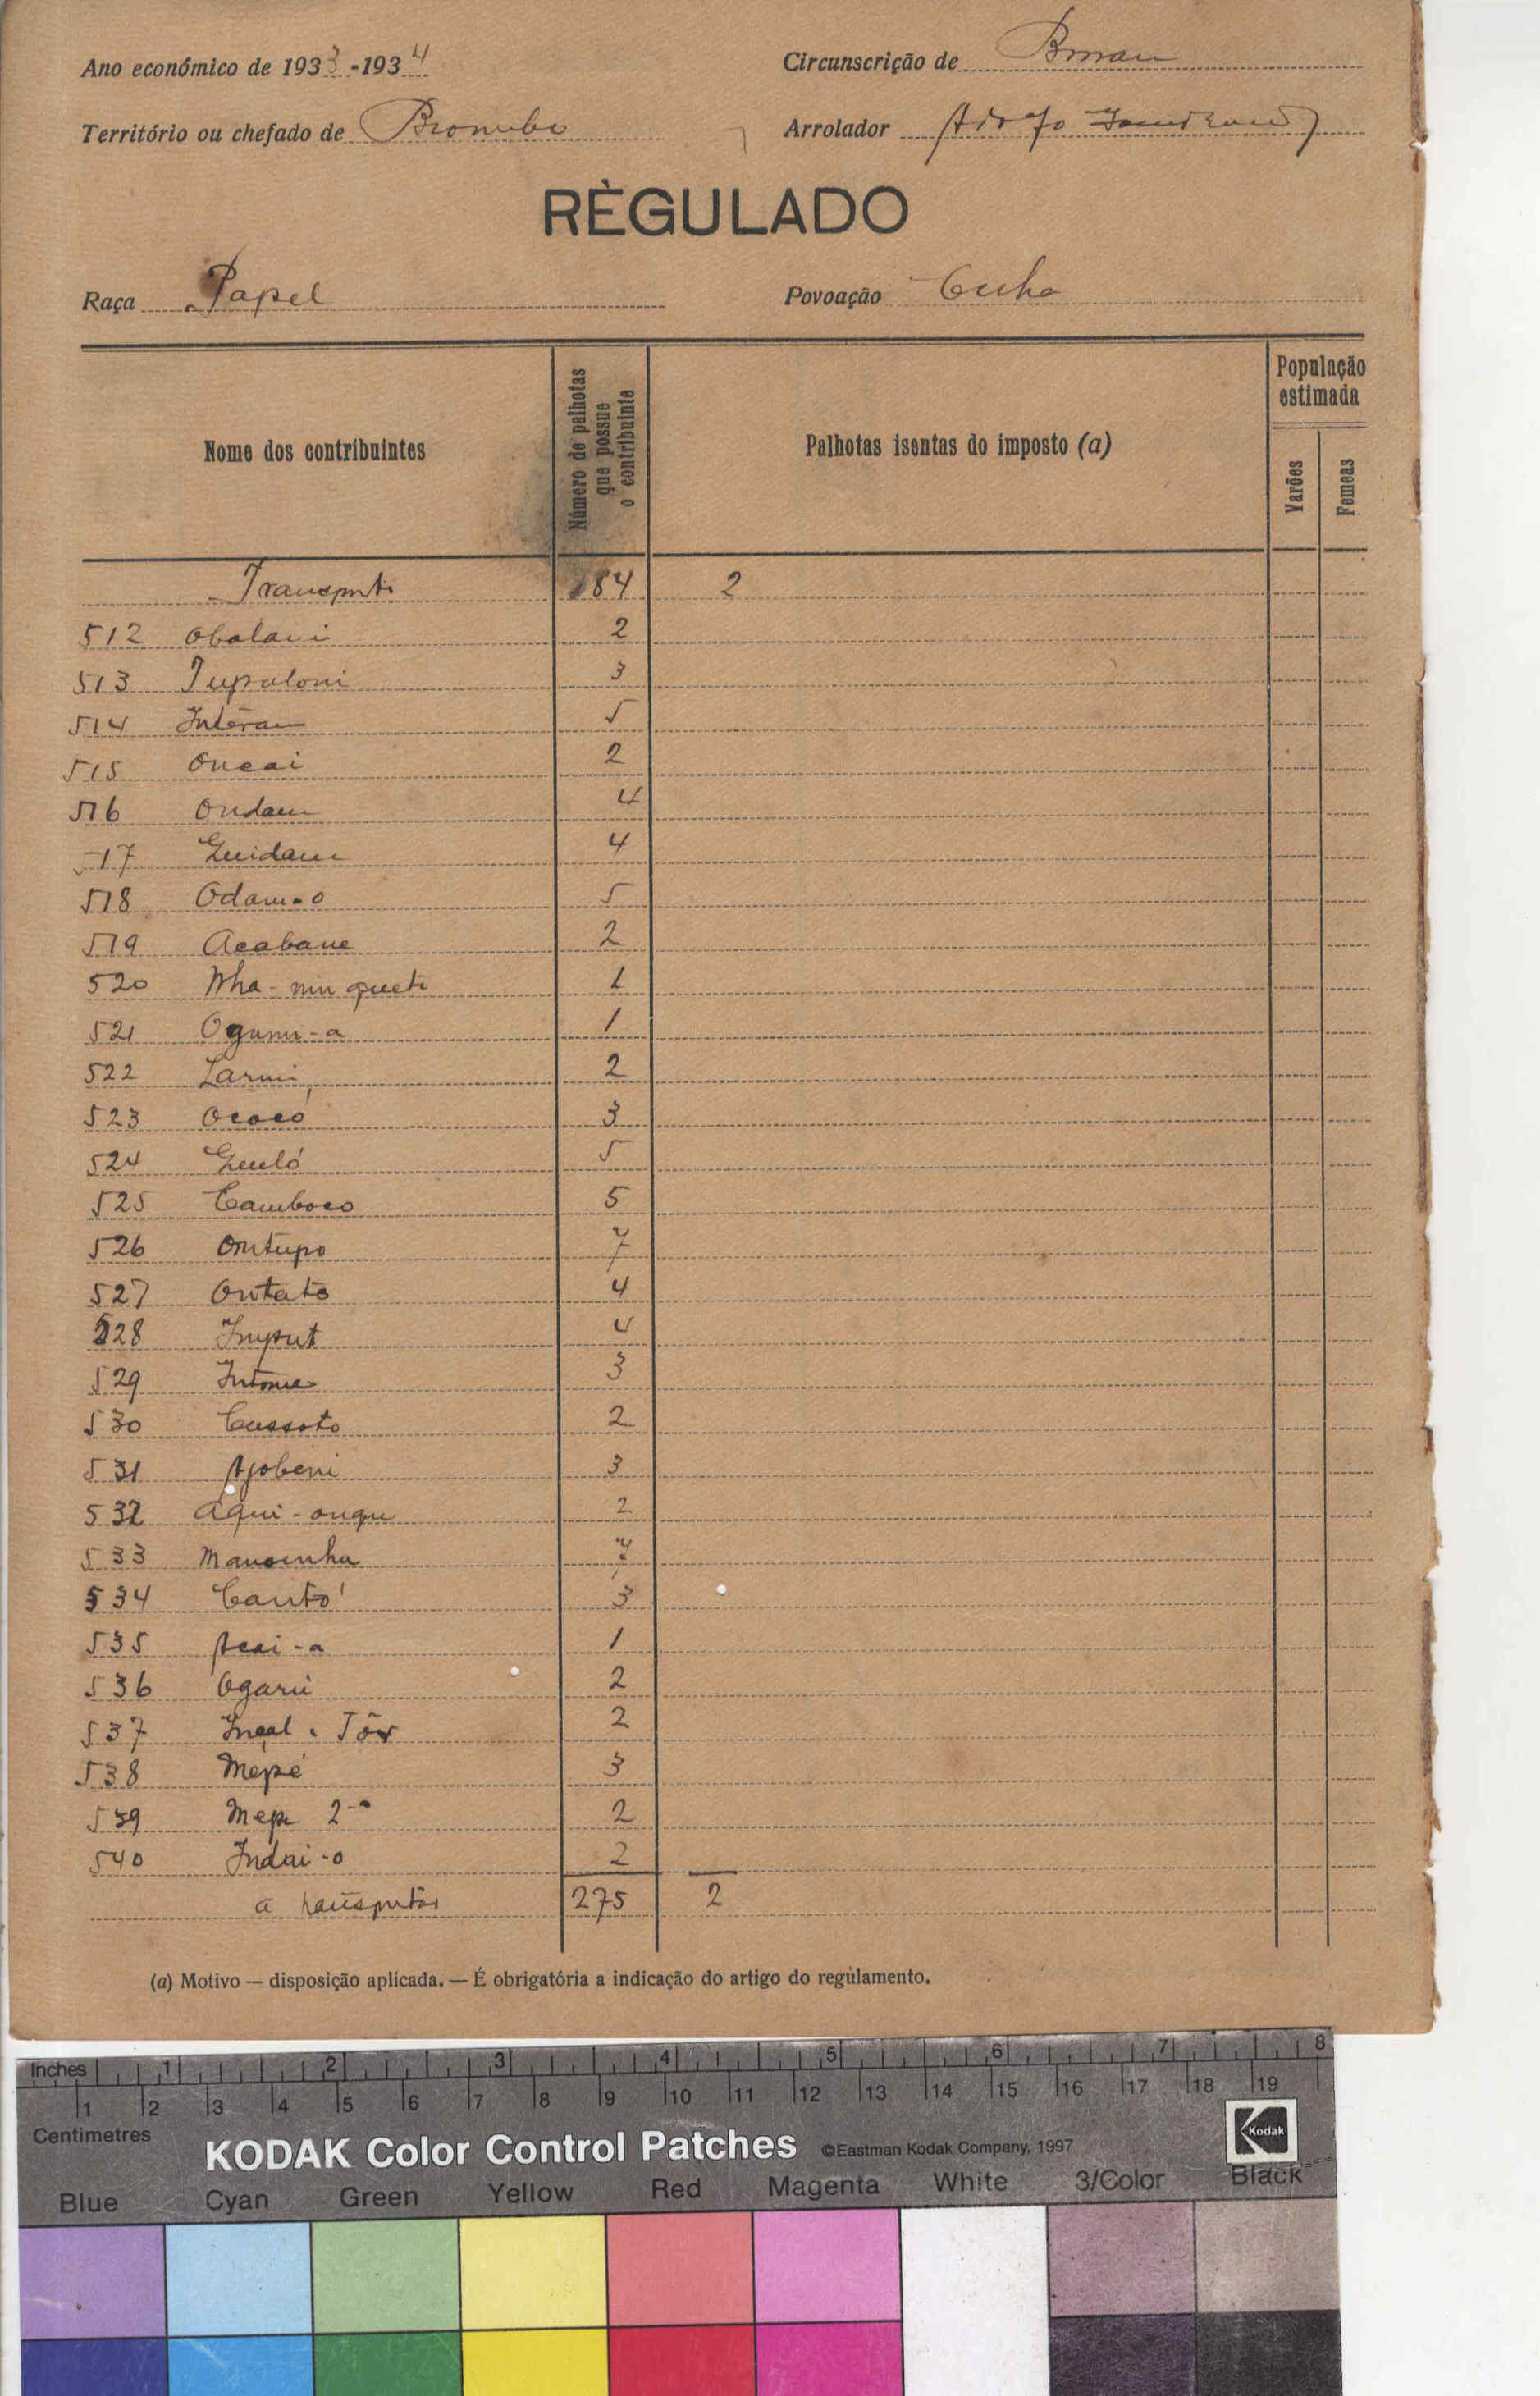 Ano económico de 1933-1934
Circunscrição de
Território ou chefado de
Arrolador Adolfo
RÈGULADO
Raça Papel
Povoação Cuho
Nome dos contribuintes
Número de palhotas que possue o contribuinte
Palhotas isentas do imposto (a)
População estimada
Varões
Femeas
Transporte 184 2
512 Obalani 2
513 Tupaloni 3
514 Intéran 5
515 Oncai 2
516 Ondam 4
517 Guidam 4
518 Odam-o 5
519 Acabane 2
520 Nha-nin quete 1
521 Ogumu-a 1
522 Larmi 2
523 Ococó 3
524 Gueló 5
525 Camboco 5
526 Ontupo 7
527 Ontato 4
528 Input 4
529 Intome 3
530 Cussoto 2
531 Ajobeni 3
532 Aqui-onque 2
533 Mansinha 7
534 Cantó 3
535 Acai-a 1
536 Ogarú 2
537 Incal Tôr 2
538 Mepé 3
539 Mepe 2º 2
540 Indai-o 2
a transportar 275 2
(a) Motivo — disposição aplicada. — É obrigatória a indicação do artigo do regulamento.
Inches 1 2 3 4 5 6 7 8
1 2 3 4 5 6 7 8 9 10 11 12 13 14 15 16 17 18 19
Centimetres
KODAK Color Control Patches ©Eastman Kodak Company, 1997 Kodak
Blue Cyan Green Yellow Red Magenta White 3/Color Black